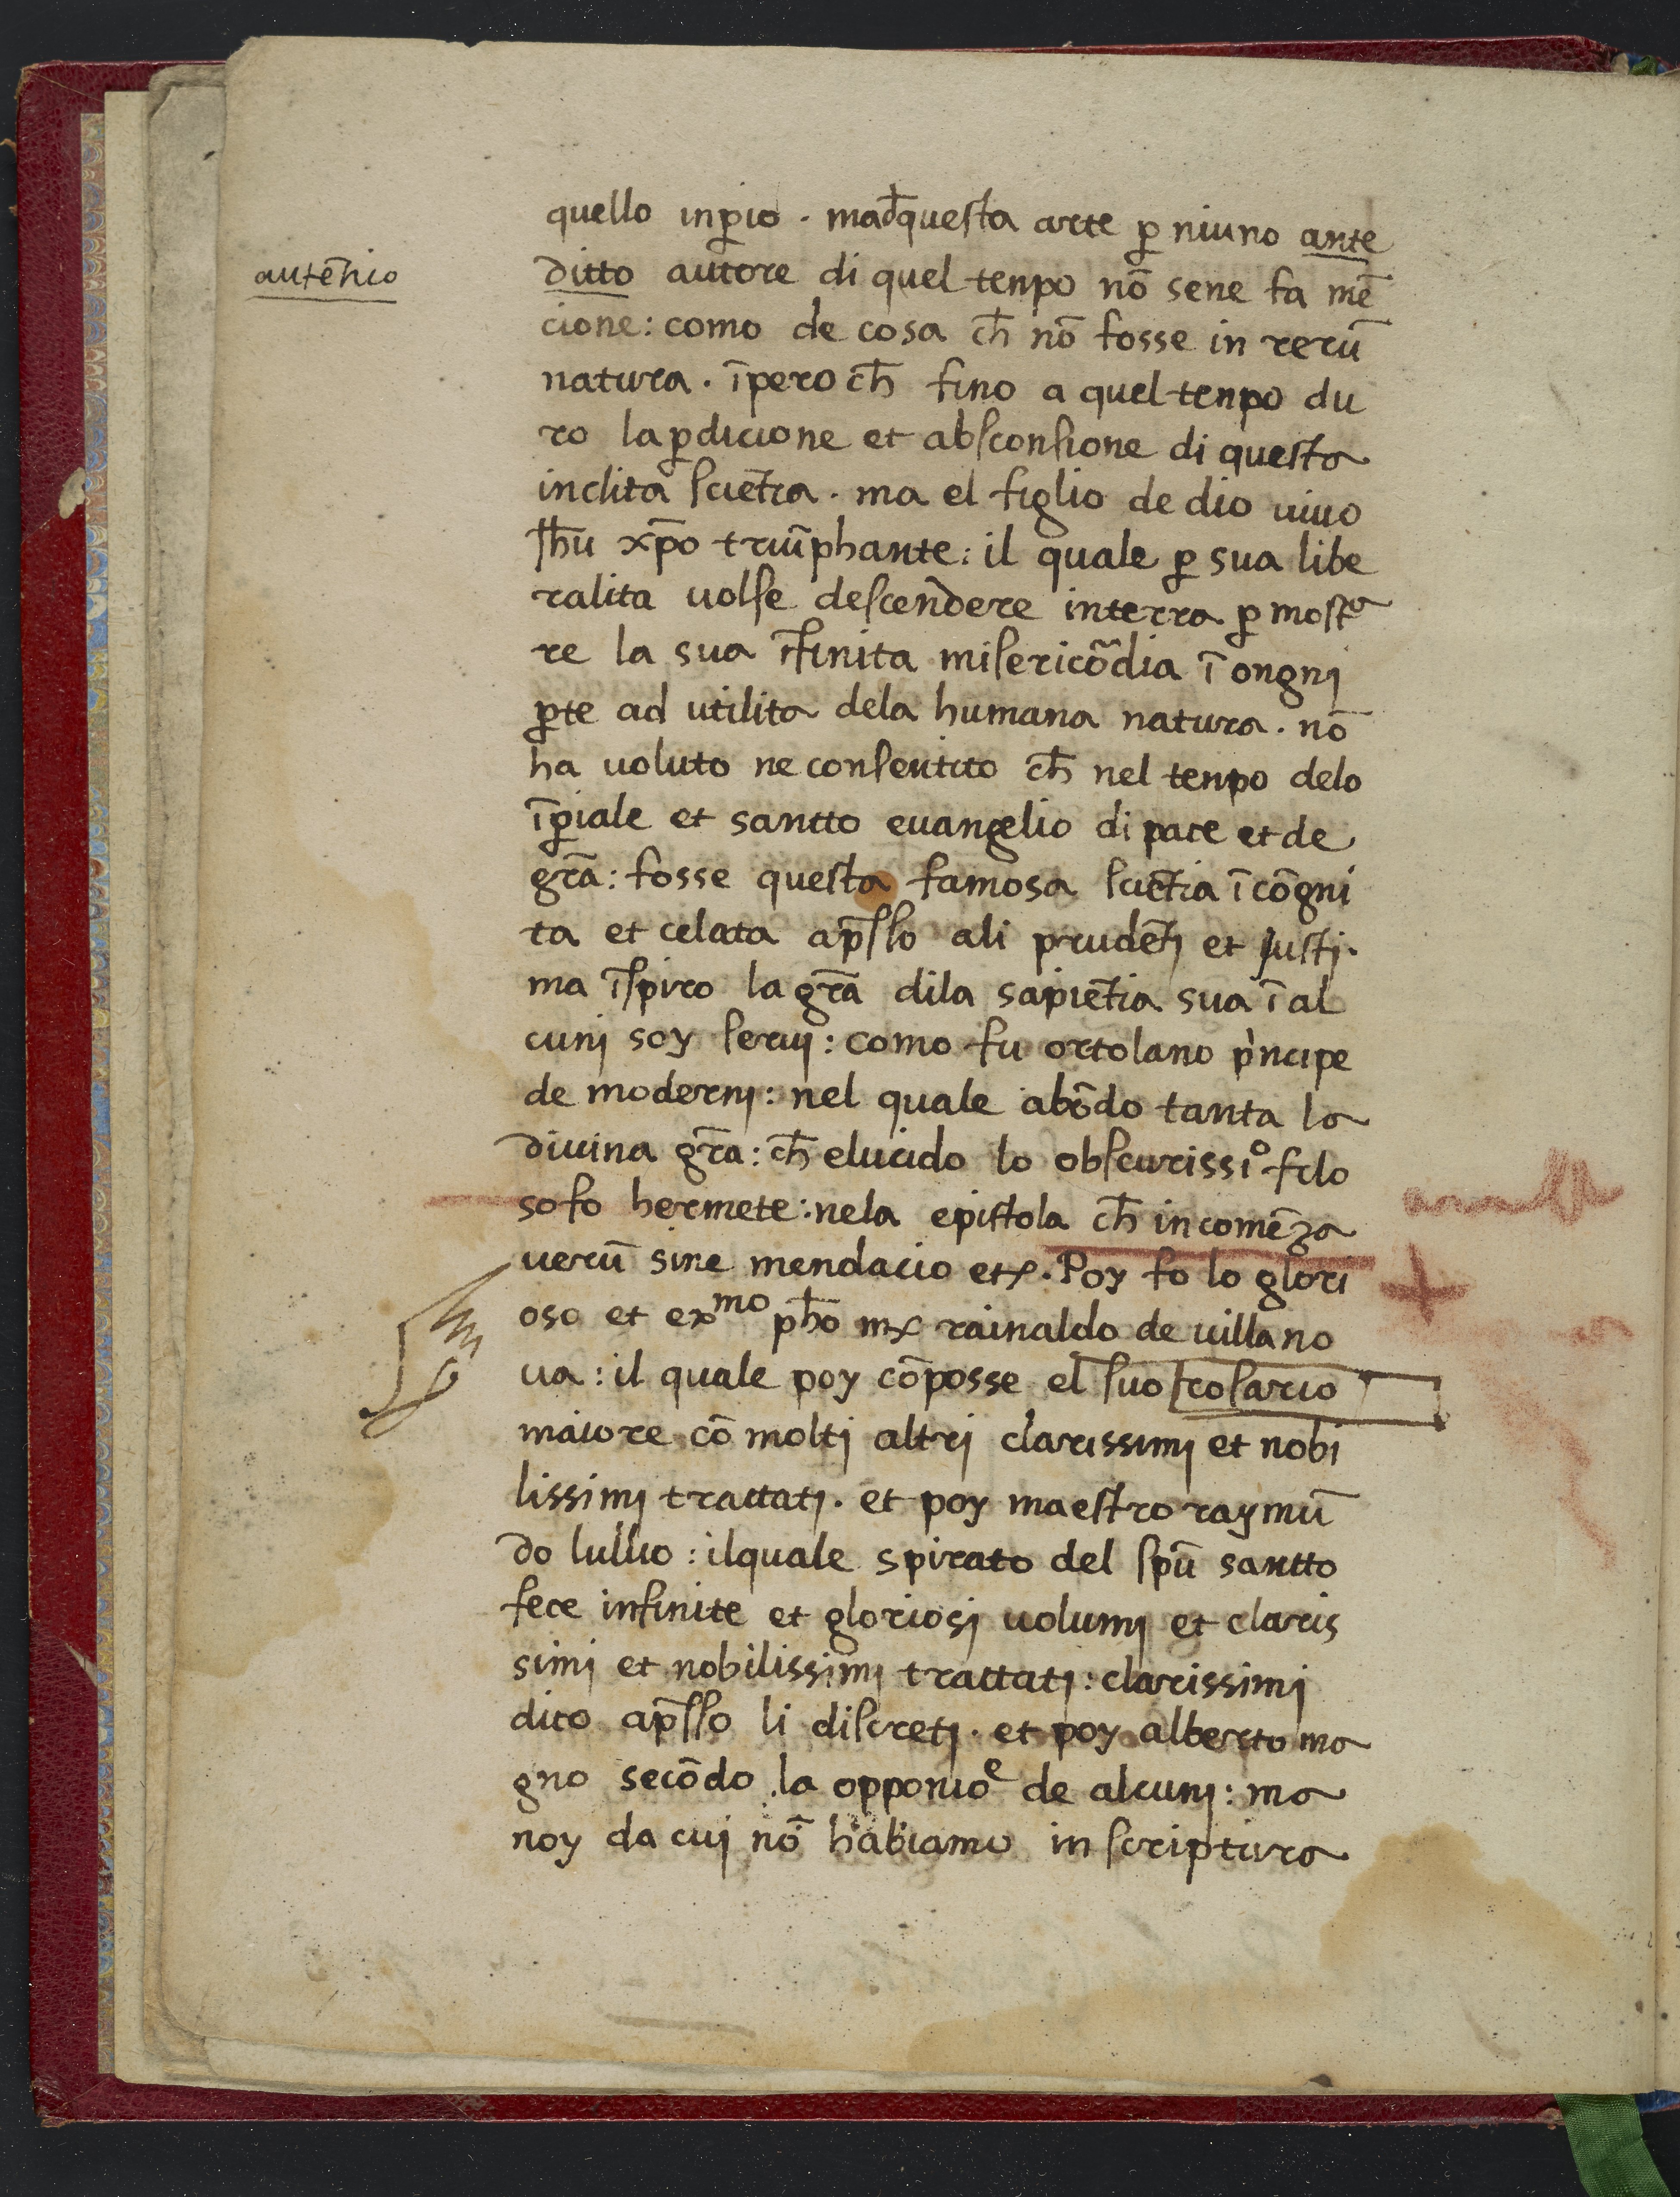 quello inꝑio . mad̄questa arte ꝑ niuno ante
autēhico
ditto autore di quel tenpo nō sene fa mē
cione: como de cosa ch̄ nō fosse in rerū
natura . īpero ch̄ fino a quel tenpo du
ro la ꝑdicione et absconsione di questa
inclita sciētia . ma el figlio de dio uiuo
Jh̄u xp̄o triūphante: il quale ꝑ sua libe
ralita uolse descendere in terra ꝑ mostᵃ
re la sua īfinita misericōdia ī ongnj
ꝑte ad utilita dela humana natura . nō
ha uoluto ne consentito ch̄ nel tenpo delo
īꝑiale et santto euangelio di pace et de
grā: fosse questa famosa sciētia īcōgni
ta et celata ap̄sso ali prudētj et justj.
ma īspiro la grā dila sapiētia sua ī al
cunj soy seruj: como fu ortolano pⁱncipe
de modernj: nel quale abōdo tanta la
diuina grā: ch̄ elucido lo obscurissiº filo
sofo hermete: nela epistola ch̄ incomēza
uerū sine mendacio etc. Poy fo lo glori
oso et exᵐᵒ ph̄o mr rainaldo de uillano
ua: il quale poy cōposse el suo rosario
maiore cō moltj altrj clarissimj et nobi
lissimj trattatj . et poy maestro raymū
do lullio: ilquale spirato del spū santto
fece infinite et gloriosj uolumj et claris
simj et nobilissimj trattatj: clarissimj
dico ap̄sso li discretj . et poy alberto ma
gno secōdo la opponioᵉ de alcunj: ma
noy da cuj nō habiamo in scriptura